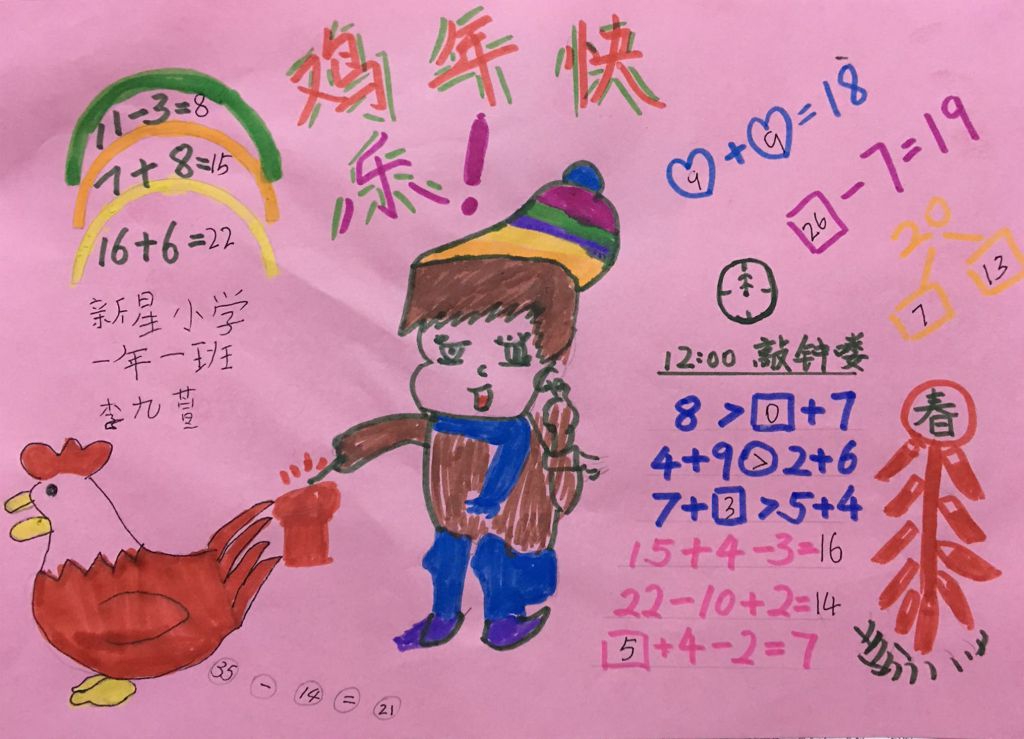 鸡年快
乐!
11-3=8
7+8=15
16+6=22
新星小学
一年一班
李九萱
9+9=18
26-7=19
20
7 13
12:00 敲钟喽
8>0+7
4+9>2+6
7+3>5+4
15+4-3=16
22-10+2=14
5+4-2=7
春
35-14=21